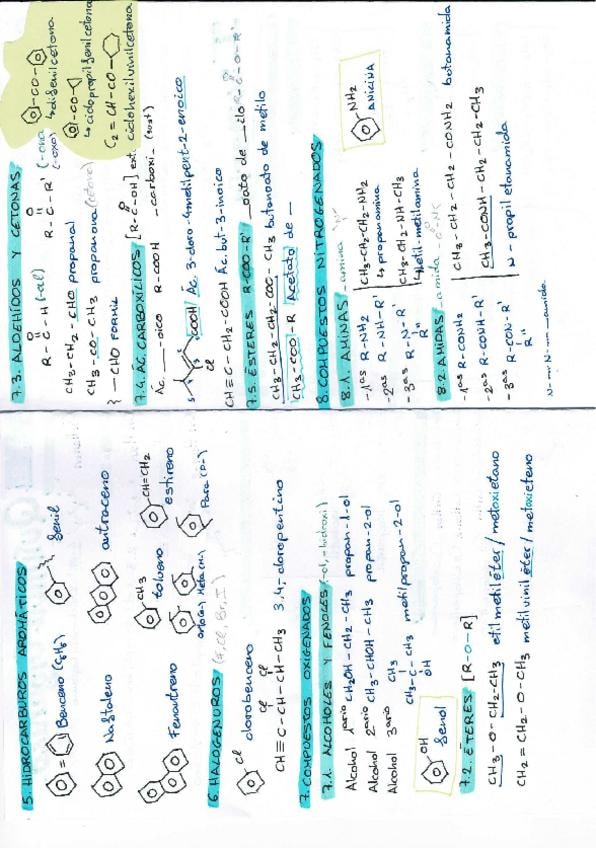 5. HIDROCARBUROS AROMÁTICOS
Benceno (C6H6)
fenil
Naftaleno
antraceno
Fenantreno
CH3
tolueno
CH=CH2
estireno
orto(o-)
Meta (m-)
Para (p-)
6. HALOGENUROS (F, Cl, Br, I)
Cl
clorobenceno
Cl Cl
CH≡C-CH-CH-CH3 3,4,-cloropentino
7. COMPUESTOS OXIGENADOS
7.1. ALCOHOLES Y FENOLES (-ol, -hidroxi)
Alcohol 1ario CH2OH-CH2-CH3 propan-1-ol
Alcohol 2ario CH3-CHOH-CH3 propan-2-ol
Alcohol 3ario
CH3
CH3-C-CH3 metilpropan-2-ol
OH
OH
fenol
7.2. ÉTERES [R-O-R]
CH3-O-CH2-CH3 etil metil éter / metoxietano
CH2=CH2-O-CH3 metil vinil éter / metoxieteno
7.3. ALDEHÍDOS Y CETONAS
O
R-C-H (-al)
O
R-C-R' (-ona)
(-oxo)
CH3-CH2-CHO propanal
CH3-CO-CH3 propanona (cetona)
-CHO FORMIL
-CO-
↳difenilcetona
-CO-
↳ciclopropilfenilcetona
C2=CH-CO-
ciclohexilvinilcetona
7.4. ÁC. CARBOXÍLICOS
O
[R-C-OH]
Ác. ___-oico R-COOH -carboxi-
COOH Ác. 3-cloro-4metilpent-2-enoico
Cl
CH≡C-CH2-COOH Ác. but-3-inoico
7.5. ÉSTERES R-COO-R' __oato de __ilo -C-O-R'
CH3-CH2-CH2-COO-CH3 butanoato de metilo
CH3-COO-R Acetato de —
8. COMPUESTOS NITROGENADOS
8.1. AMINAS -amina
-1as R-NH2
-2as R-NH-R'
-3as R-N-R'
R''
CH3-CH2-CH2-NH2
↳propanamina
CH3-CH2-NH-CH3
Metil-
NH2
ANILINA
8.2. AMIDAS -amida
-1as R-CONH2
-2as R-CONH-R'
-3as R-CON-R'
R''
CH3-CH2-CH2-CONH2 butanamida
CH3-CONH-CH2-CH2-CH3
N-propil etanamida
N-— N-— —amida